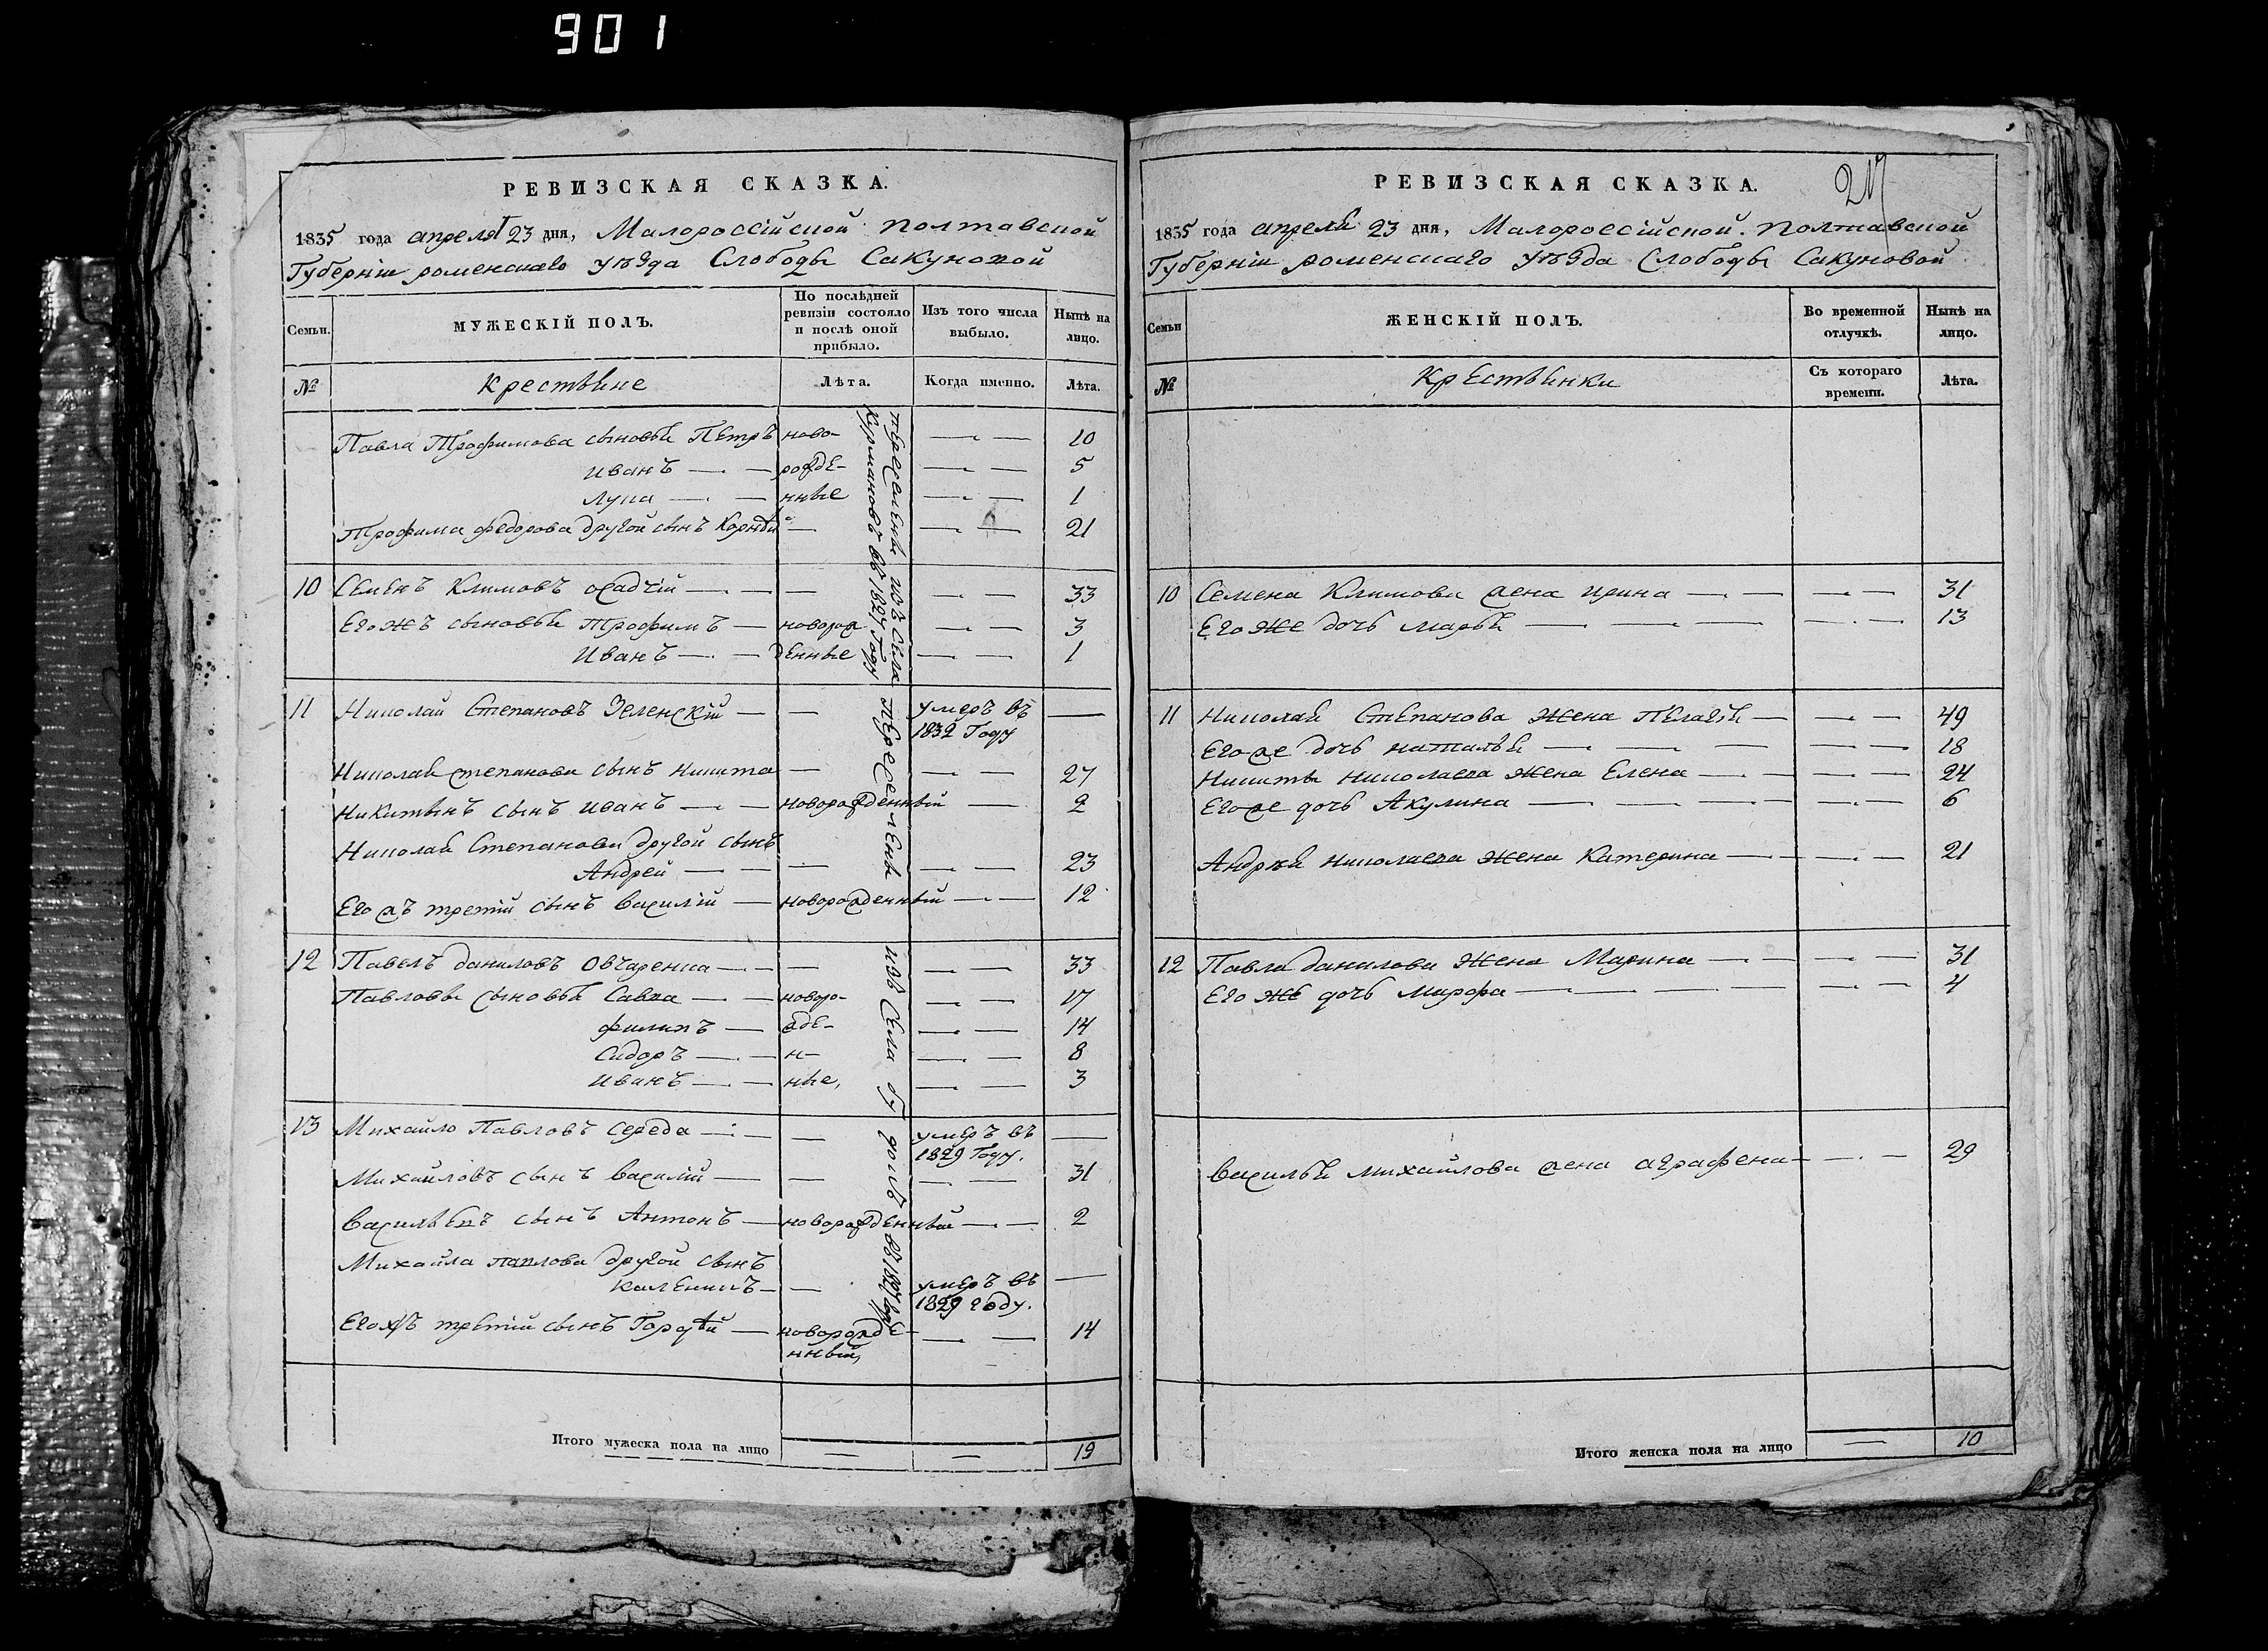 901
РЕВИЗСКАЯ СКАЗКА.
1835 года апреля 23 дня, Малороссійской Полтавской
Губерніи роменскаго уѣзда Слободы Сакуновой
Семьи.
МУЖЕСКІЙ ПОЛЪ.
По послѣдней ревизіи состояло и послѣ оной прибыло.
Изъ того числа выбыло.
Нынѣ на лицо.
№ Крестьяне Лѣта. Когда именно. Лѣта.
Павла Трофимова сыновья Петръ ново- — — 10
Иванъ — — рожде- — — 5
Лука — — нные — — 1
Трофима федорова другой сынъ Корнѣй — — — 21
10 Семенъ Климовъ осадчій — — — — — 33
Егожъ сыновья трофимъ — новорож — — 3
Иванъ — — денные — — 1
11 Николай Степановъ Зеленскій — — умеръ въ —
1832 Году
Николая степанова сынъ никита — — — 27
Никитынъ сынъ иванъ — — новорожденный — 2
Николая Степанова другой сынъ
Андрей — — — — — 23
Его жъ третій сынъ василій — новорожденный — — 12
12 Павелъ даниловъ Овчаренка — — — — — 33
Павловы сыновья Савка — — новоро- — — 17
филипъ — жде- — — 14
Сидоръ — — н- — — 8
иванъ — — ные, — — 3
13 Михайло Павловъ середа — — — умеръ въ —
1829 Году.
Михайловъ сынъ василій — — — — 31
Васильевъ сынъ Антонъ — новорожденный — — 2
Михайла павлова другой сынъ
каленикъ — — умеръ въ —
1829 году.
Егожъ третій сынъ Гордѣй — новорожде- — — 14
нный,
переселены изъ села
Курмановъ въ 1827 Году
переселены изъ села
въ 1827 году
Итого мужеска пола на лицо — — 19
РЕВИЗСКАЯ СКАЗКА.
217
1835 года апреля 23 дня, Малороссійской Полтавской
Губерніи роменскаго уѣзда Слободы Сакуновой
Семьи
ЖЕНСКІЙ ПОЛЪ.
Во временной отлучкѣ.
Нынѣ на лицо.
№ Крестьянки Съ котораго времени. Лѣта.
10 Семена Климова жена ирина — — — — 31
Его же дочь марья — — — — — 13
11 Николая Степанова жена пелагѣя — — — 49
Его же дочь наталья — — — — — 18
Никиты николаева жена Елена — — — — 24
Его же дочь Акулина — — — — — 6
Андрѣя николаева жена Катерина — — — — 21
12 Павла данилова жена Марина — — — — 31
Его же дочь Мирофа — — — — — — 4
василья михайлова жена аграфена — — — 29
Итого женска пола на лицо — 10